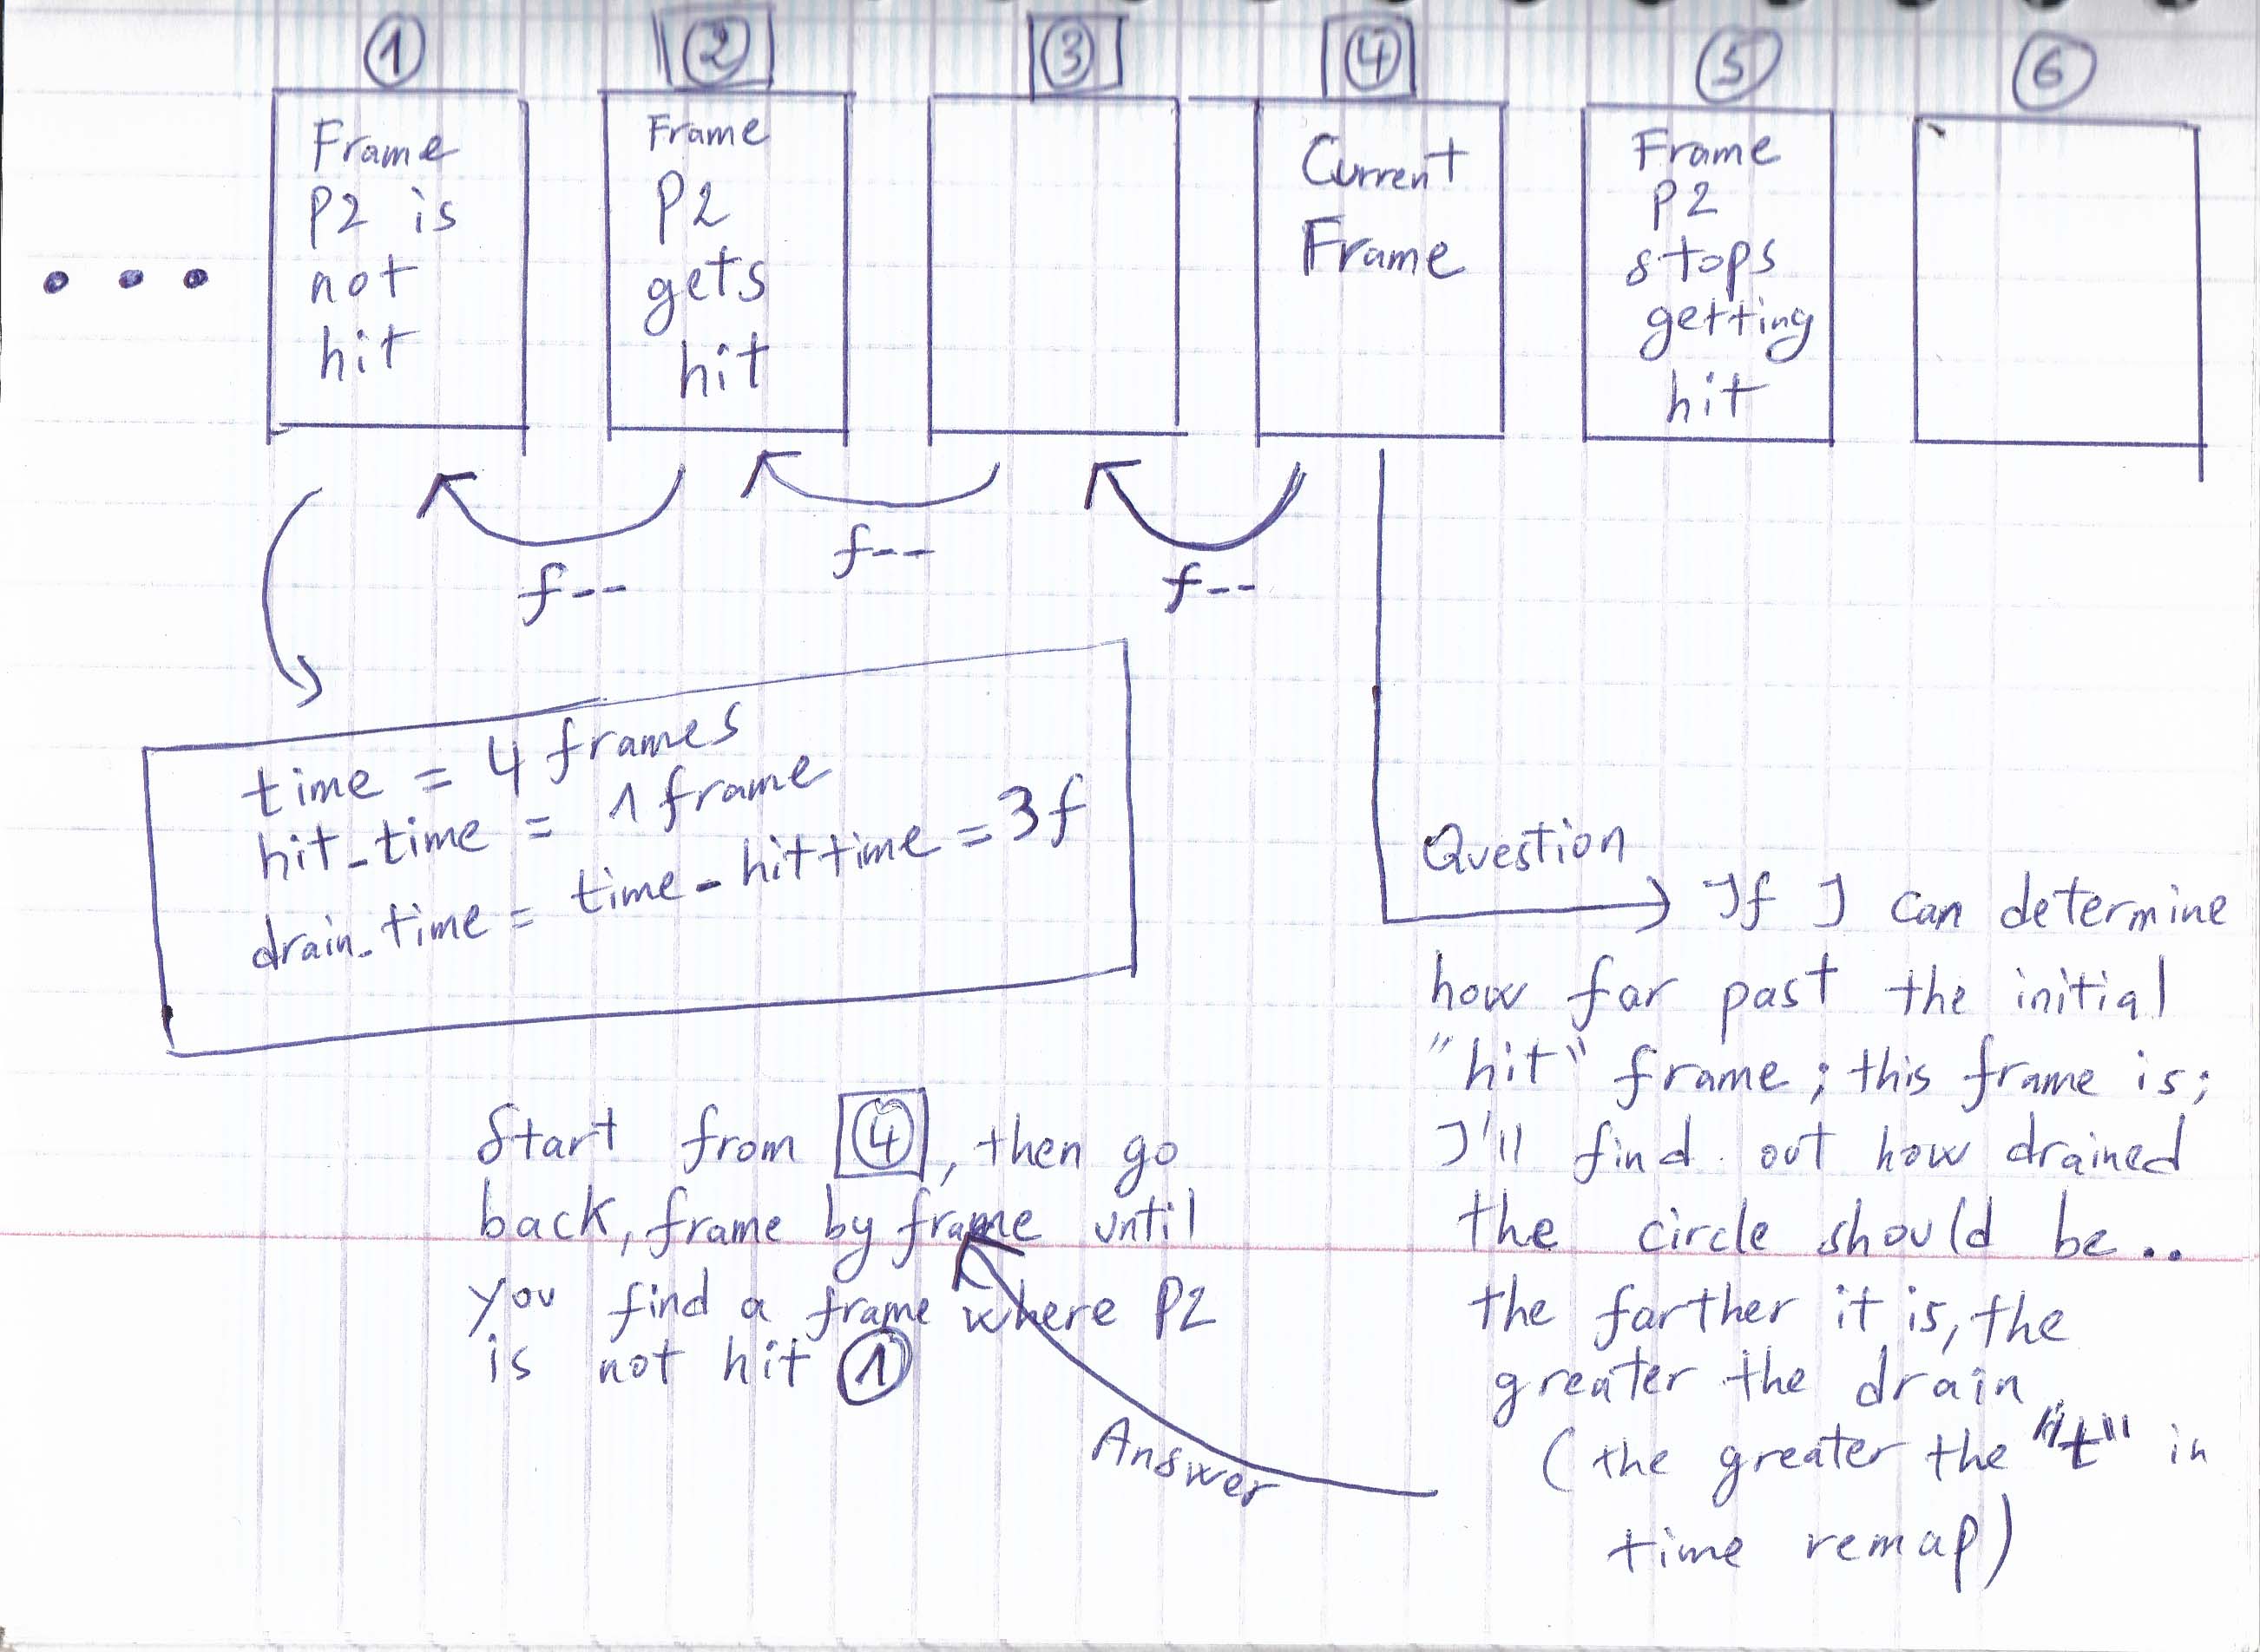 1 2 3 4 5 6
Frame
P2 is
not
hit
Frame
P2
gets
hit
Current
Frame
Frame
P2
stops
getting
hit
f--
f--
f--
time = 4 frames
hit_time = 1 frame
drain_time = time - hittime = 3f
Question
If I can determine
how far past the initial
"hit" frame; this frame is;
I'll find out how drained
the circle should be..
the farther it is, the
greater the drain
(the greater the "t" in
time remap)
Answer
Start from 4, then go
back, frame by frame until
you find a frame where P2
is not hit 1